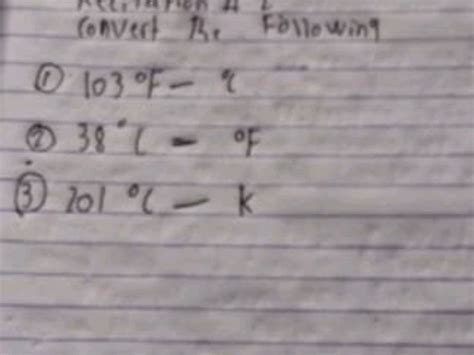 Convert The Following
① 103 °F – °C
② 38 °C – °F
③ 201 °C – K